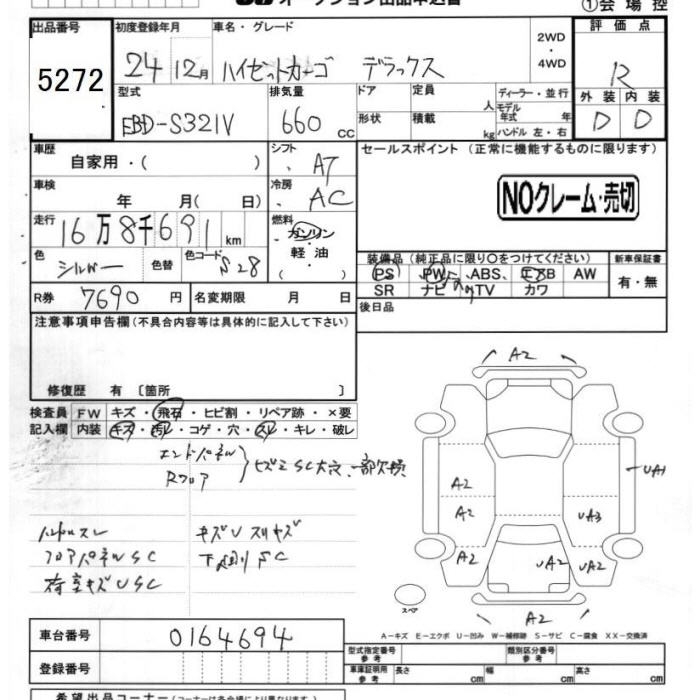 オークション出品申込書
①会場控
出品番号 初度登録年月 車名・グレード 評価点
5272 24 12月 ハイゼットカーゴ デラックス 2WD・4WD R
型式 排気量 ドア 定員 人 ディーラー・並行 外装 内装
EBD-S321V 660 CC 形状 積載 kg モデル年式 年 ハンドル 左・右 D D
車歴 自家用・( ) シフト ・ AT セールスポイント (正常に機能するものに限ります)
車検 年 月( 日) 冷房 ・ AC
NOクレーム・売切
走行 16万8千691km 燃料 ・ ガソリン
軽油
・( )
色 シルバー 色替 色コード S28
装備品 (純正品に限り○をつけてください) 新車保証書
PS PW ABS、エアB AW 有・無
SR ナビ TV カワ
R券 7690円 名変期限 月 日 後日品
注意事項申告欄 (不具合内容等は具体的に記入して下さい)
修復歴 有 [箇所 ]
検査員 FW キズ・飛石・ヒビ割・リペア跡・×要
記入欄 内装 キズ・汚レ・コゲ・穴・スレ・キレ・破レ
エンドパネル
Rフロア
ヒズミSC大穴、一部欠損
ハンドルスレ キズUスリキズ
フロアパネルSC 下廻りSC
荷室キズUSC
A2
UA1
A2
A2 UA3
A2 UA2 UA2
A2
スペア
A-キズ E-エクボ U-凹み W-補修跡 S-サビ C-腐食 XX-交換済
車台番号 0164694
登録番号
型式指定番号 参考 類別区分番号 参考
車庫証明用 参考 長さ cm 幅 cm 高さ cm
希望出品コーナー